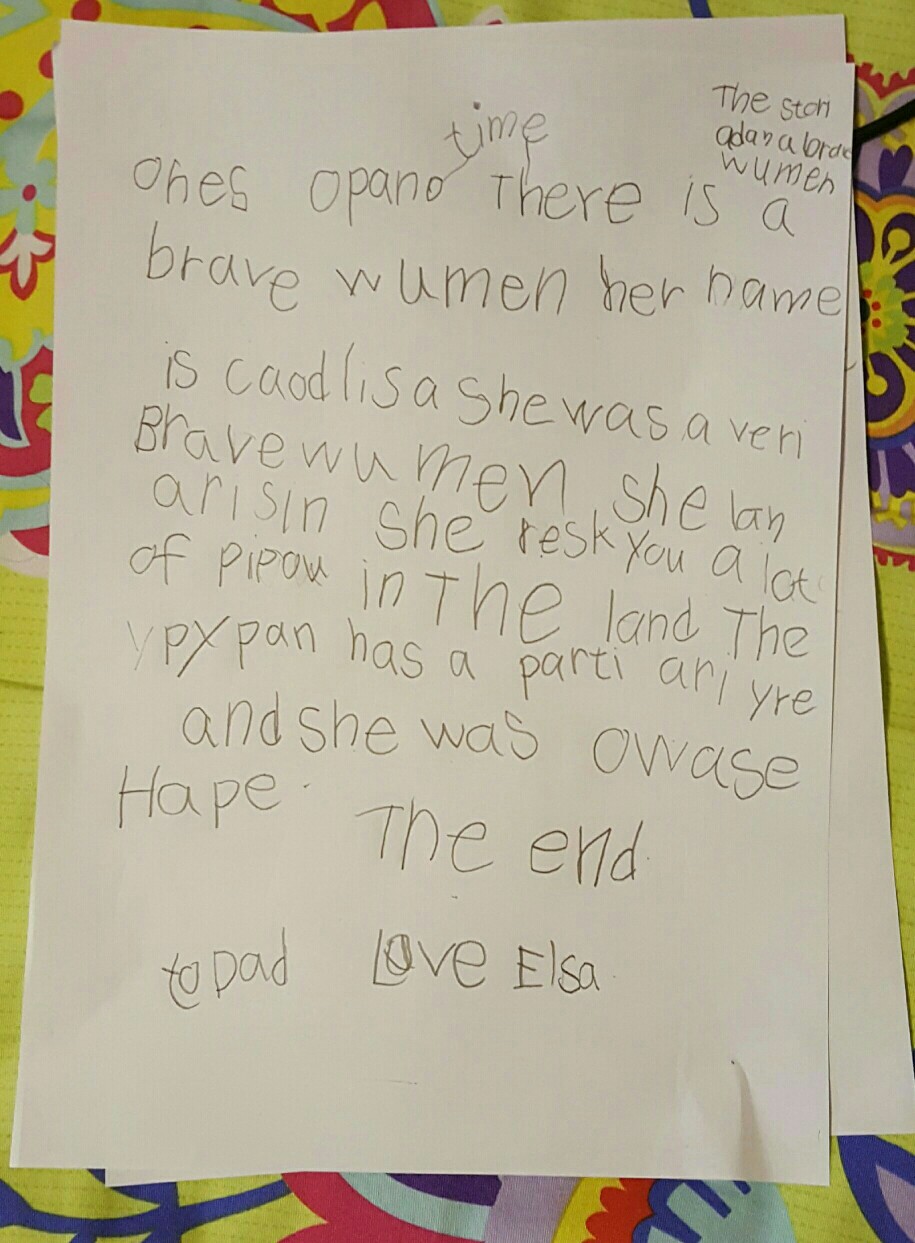 The stori
adan a brave
wumen
time
Ones opano There is a
brave wumen her name
is caodlisa she was a veri
Brave wumen she lan
arisin she resk you a lot
of pipou in The land The
ypypan has a parti ari yre
and she was owase
Hape.
The end.
to Dad Love Elsa.